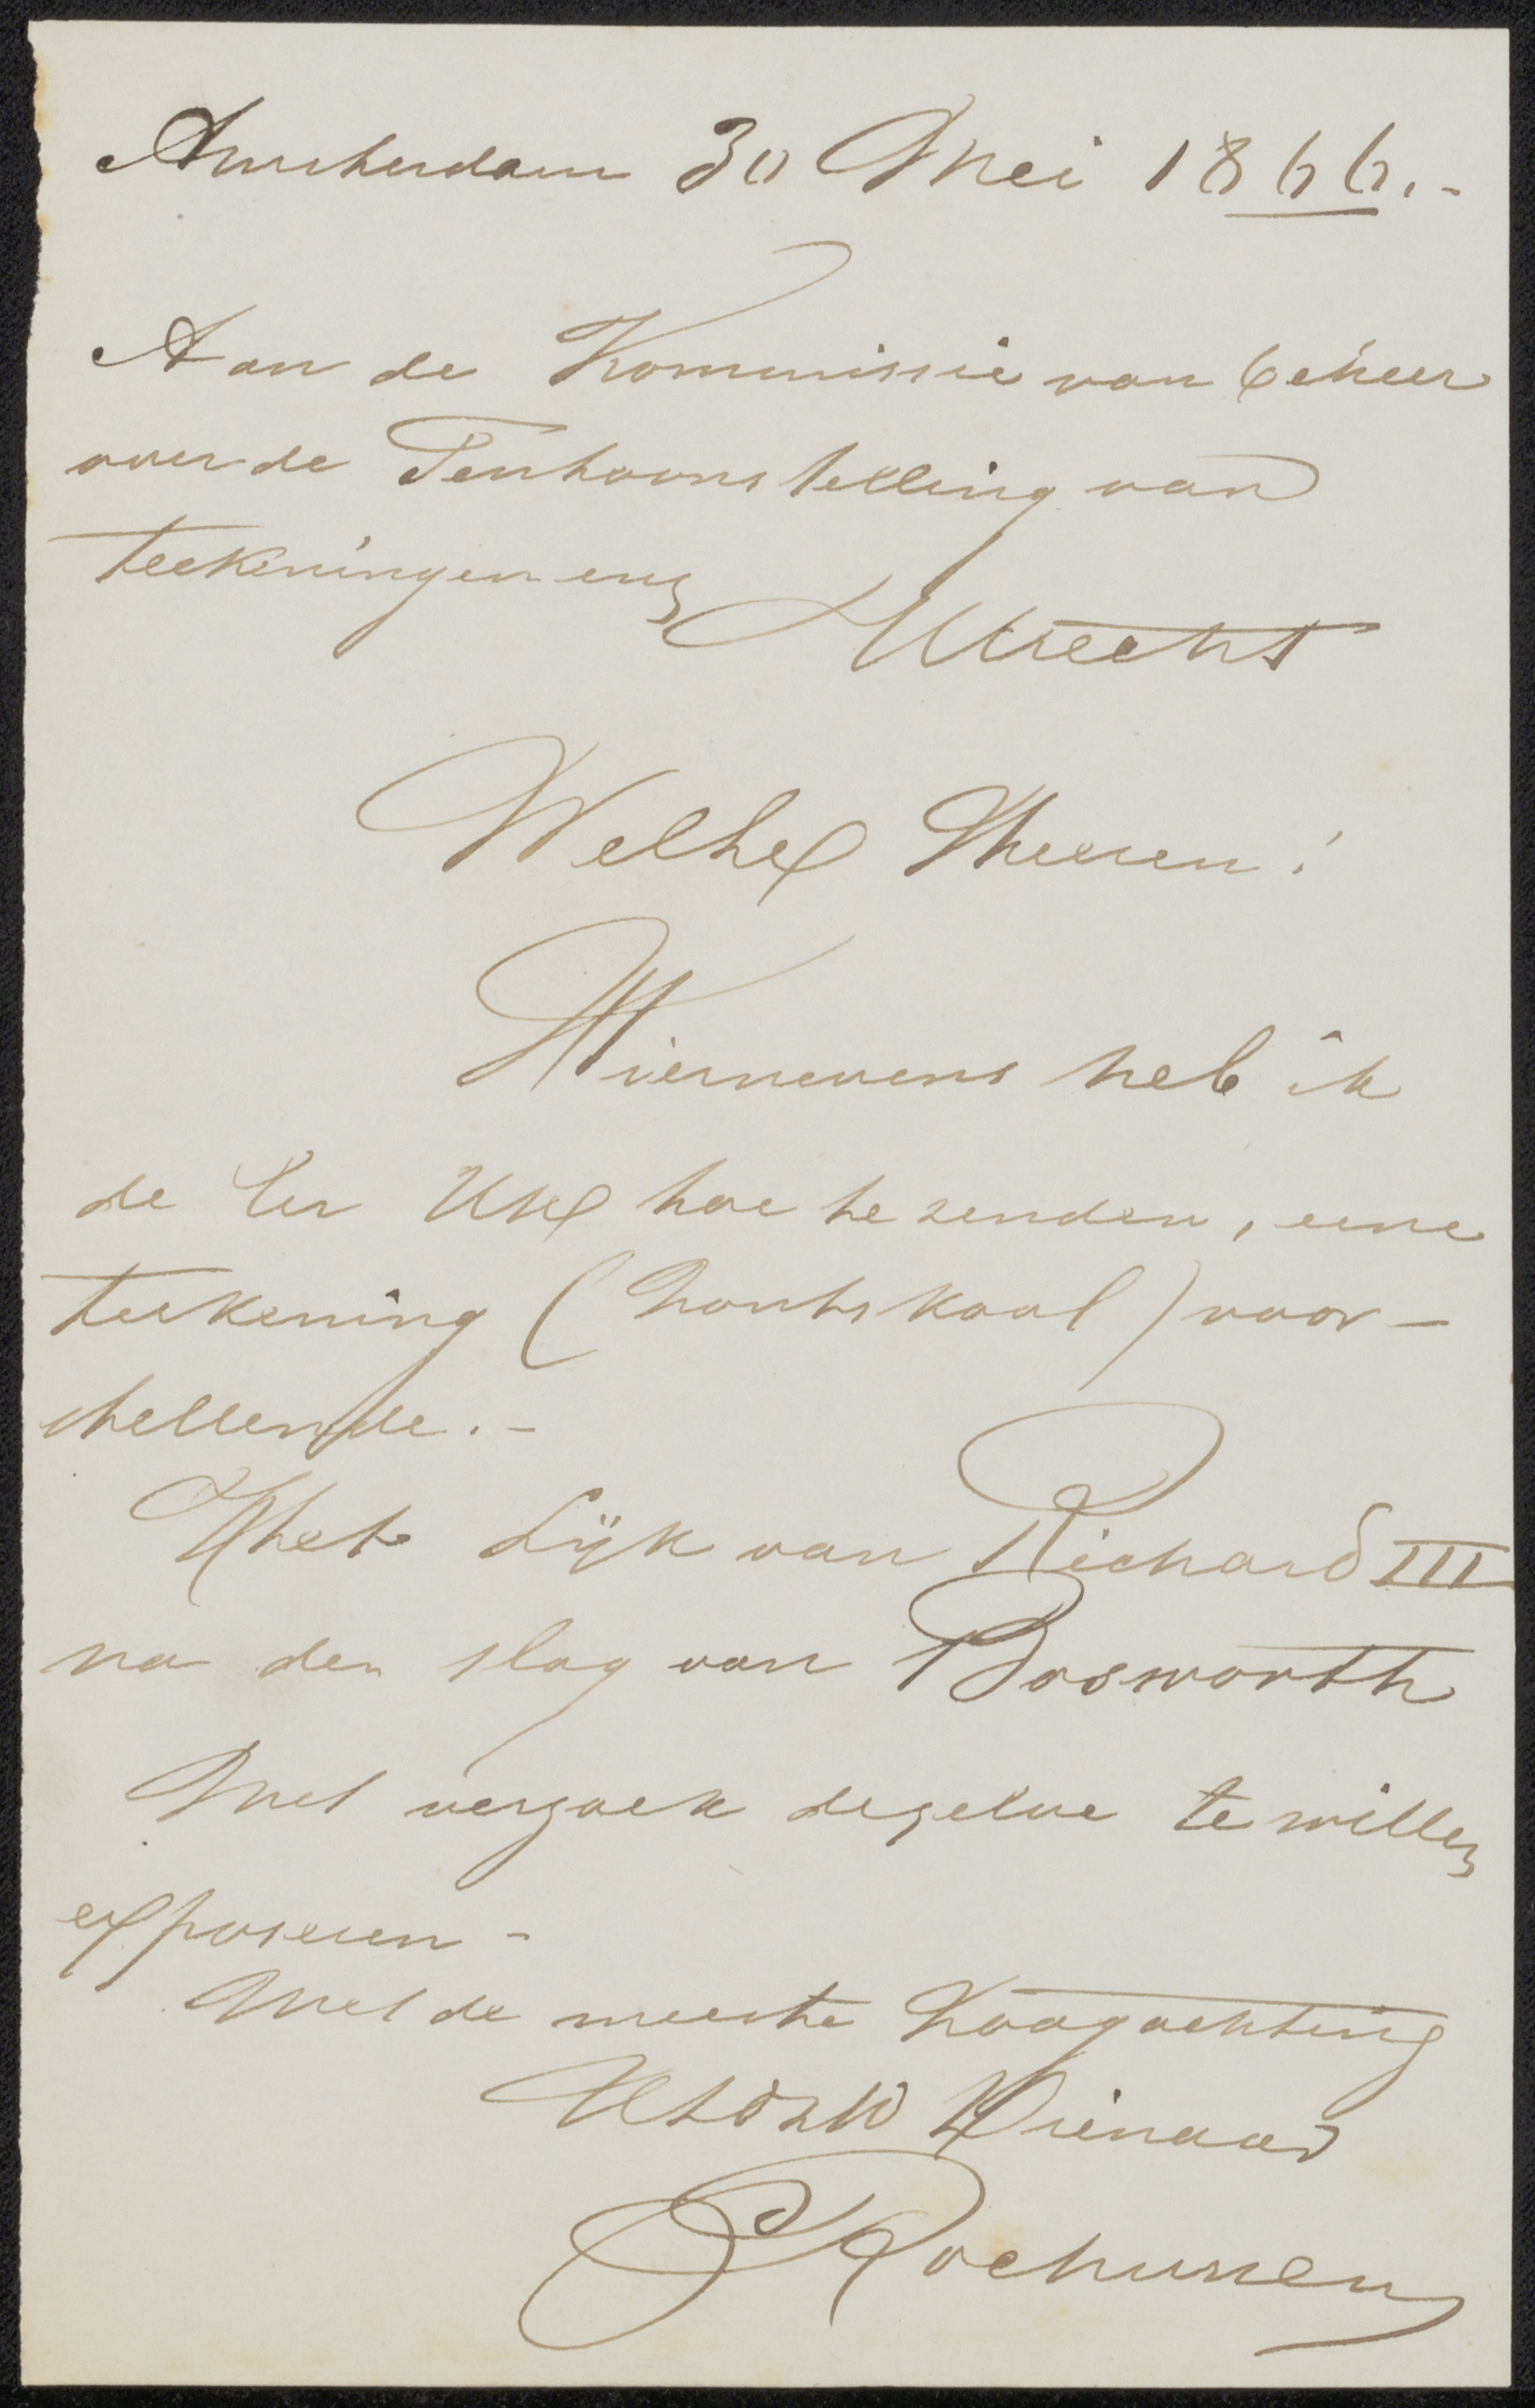 Amsterdam 30 Mei 1866.-
Aan de Kommissie van beheer
over de Tentoonstelling van
teekeningen enz
Utrecht
WelEd Heeren!
Hiernevens heb ik
de Eer UEd toe te zenden, eene
teekening (houtskool) voor-
stellende.-
Het Lijk van Richard III
na den slag van Bosworth
Met verzoek dezelve te willen
exposeren -
Met de meeste Hoogachting
UEd Dienaar
C Rochussen